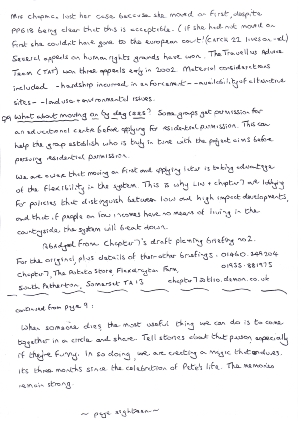 Mrs Chapman lost her case because she moved on first, despite
PPG18 being clear that this is acceptable. (if she had not moved on
first she couldn't have gone to the european court!
Several appeals on human rights grounds have won. The Travellers Advice
Team (TAT) won three appeals early in 2002. Material considerations
included - hardship incurred in enforcement - availability of alternative
sites - land use - environmental issues.
What about moving on by day Some groups get permission for
an educational centre before applying for residential permission. This can
help the group establish who is truly in tune with the project aims before
pursuing residential permission.
We are aware that moving on first and applying later is taking advantage
of the flexibility in the system. This is why chapter 7 are lobbying
for policies that distinguish between low and high impact developments,
and that if people on low incomes have no means of living in the
countryside, the system will break down.
Abridged from Chapter 7's draft planning briefing no 2.
For the original plus details of their other briefings. 01460.249204
Chapter 7, The Potato Store, Flaxdrayton Farm, 01935-881975
South Petherton, Somerset TA13 chapter7@tlio.demon.co.uk
continued from page 9:
When someone dies the most useful thing we can do is to come
together in a circle and share. Tell stories about that person especially
if they're funny. In so doing, we are creating a magic that endures.
Its three months since the celebration of Pete's life. The memories
remain strong.
~ page eighteen ~